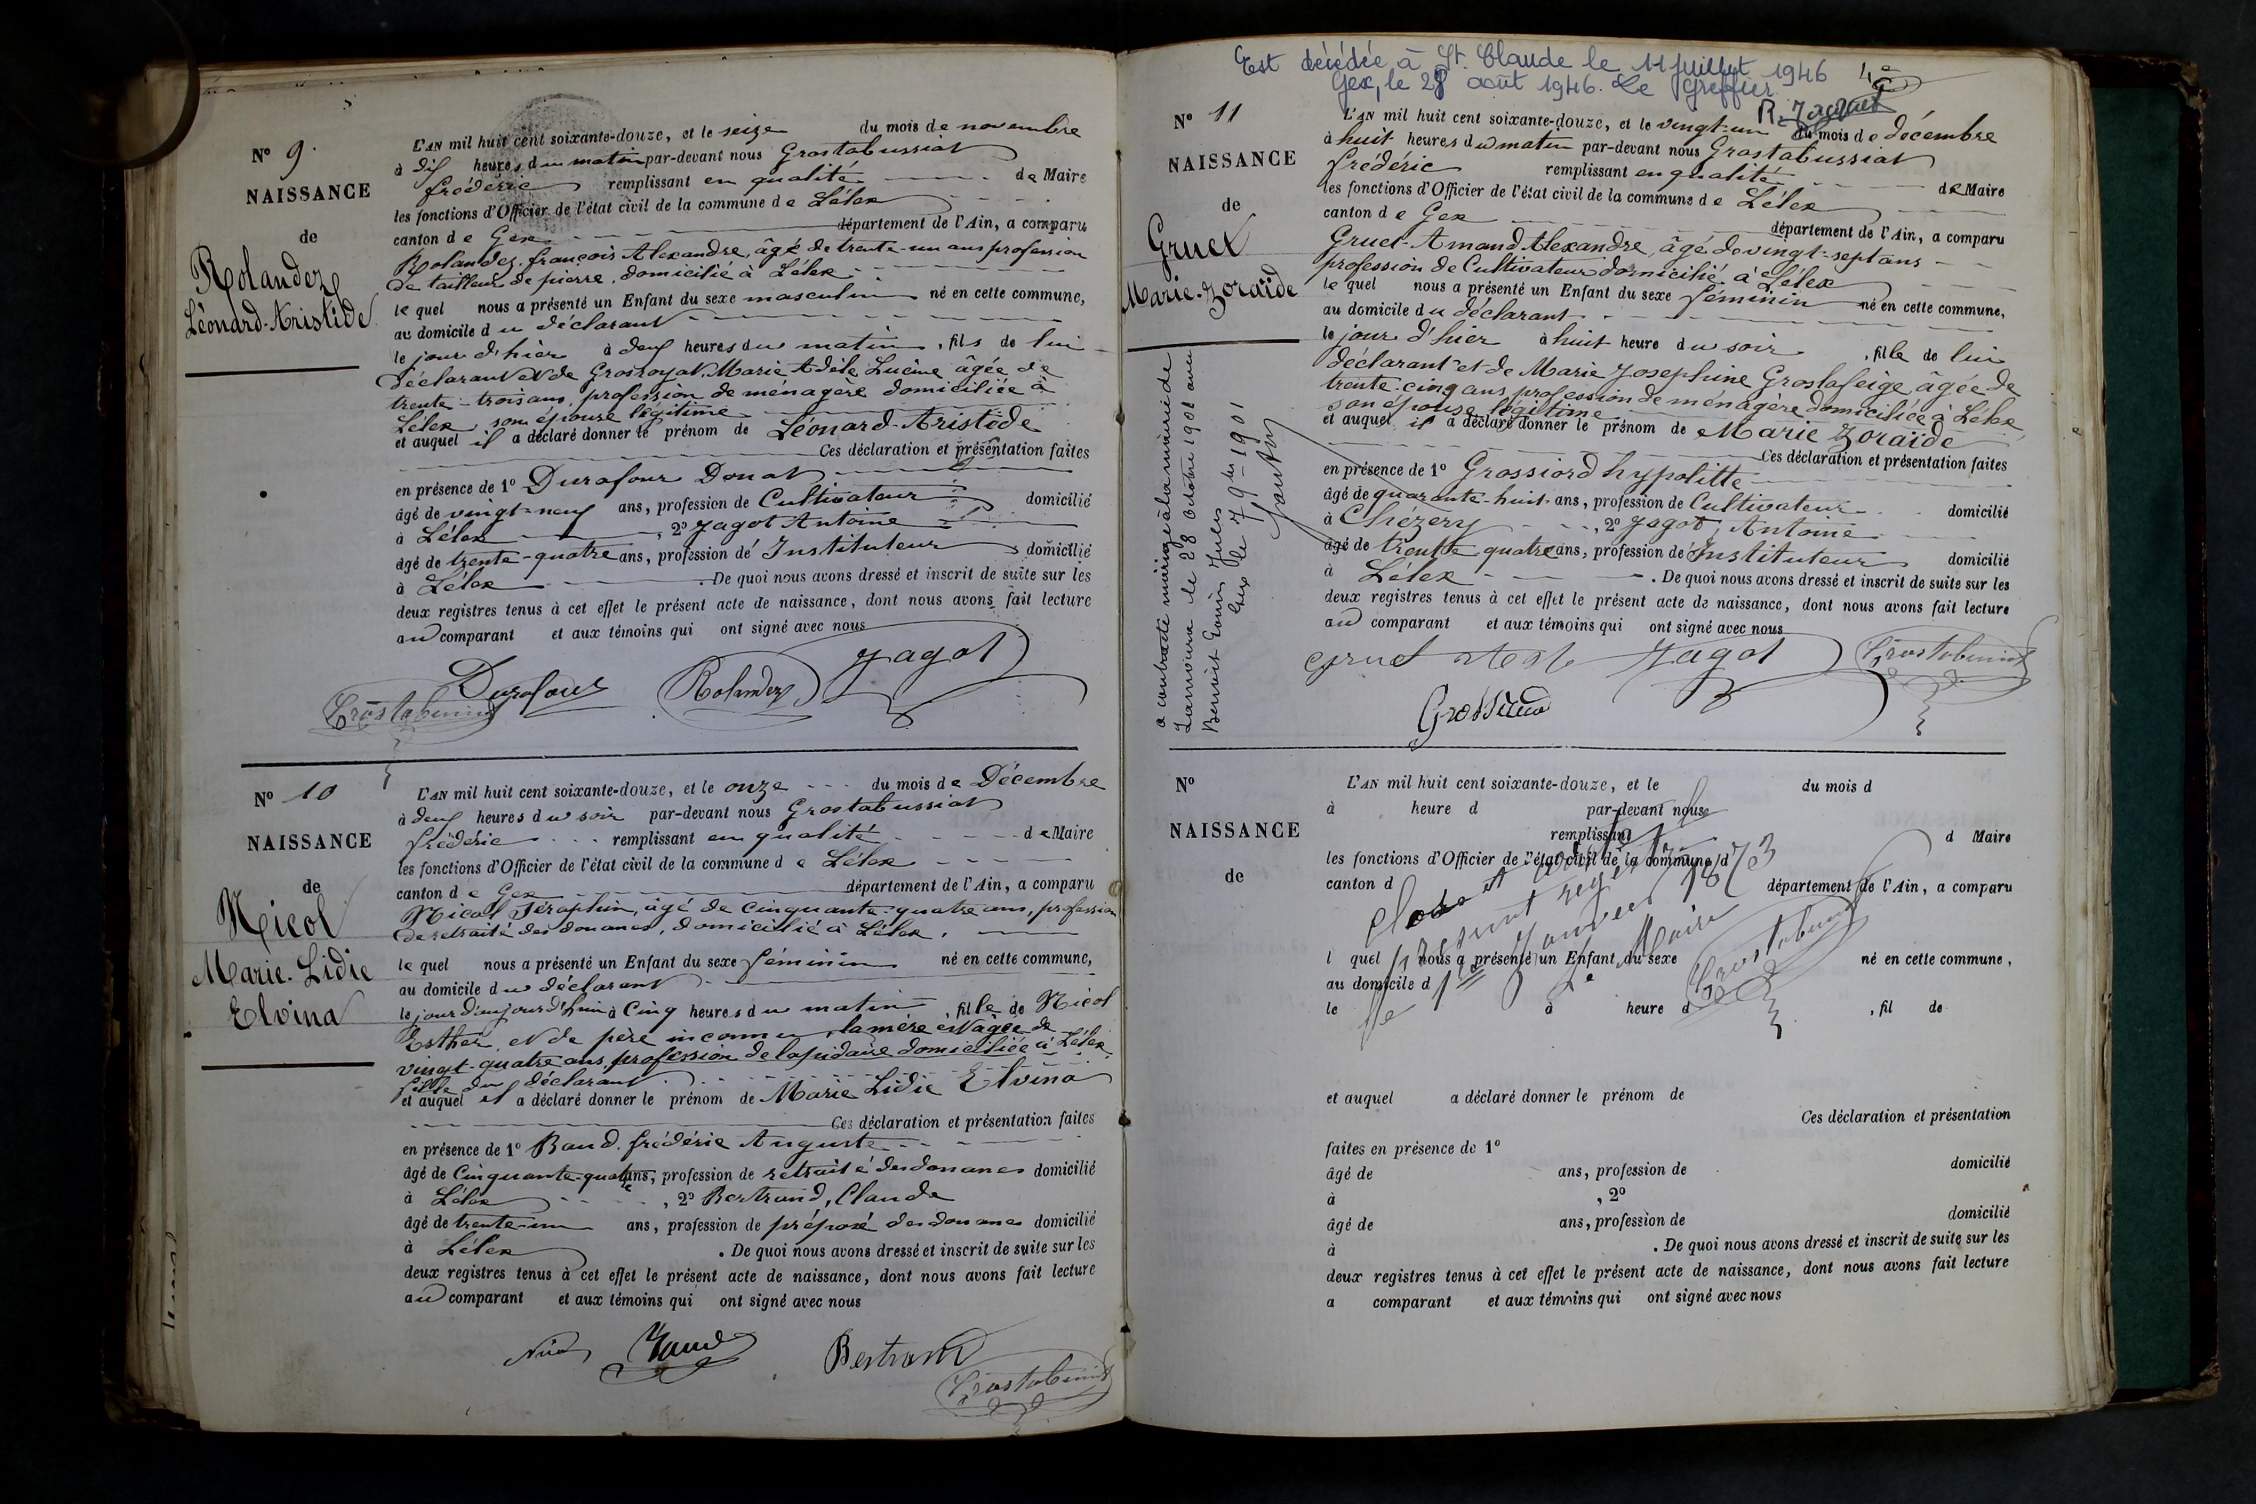 N° 9
NAISSANCE
de
Rolandez
Léonard-Aristide
L'AN mil huit cent soixante-douze, et le seize du mois de novembre
à dix heures du matin par-devant nous Grostabussiat
frédéric remplissant en qualité de Maire
les fonctions d'Officier de l'état civil de la commune de Lélex
canton de Gex département de l'Ain, a comparu
Rolandez françois Alexandre, âgé de trente-un ans profession
de tailleur de pierre, domicilié à Lélex
le quel nous a présenté un Enfant du sexe masculin né en cette commune,
au domicile du déclarant
le jour d'hier à deux heures du matin, fils de lui
déclarant et de Grosroyat Marie Adèle Lucine âgée de
trente-trois ans, profession de ménagère domiciliée à
Lélex son épouse légitime
et auquel il a déclaré donner le prénom de Léonard-Aristide
Ces déclaration et présentation faites
en présence de 1° Durafour Donat
âgé de vingt-neuf ans, profession de Cultivateur domicilié
à Lélex, 2° Jagot Antoine
âgé de trente-quatre ans, profession de Instituteur domicilié
à Lélex. De quoi nous avons dressé et inscrit de suite sur les
deux registres tenus à cet effet le présent acte de naissance, dont nous avons fait lecture
au comparant et aux témoins qui ont signé avec nous
Durafour Rolandez Jagot
Grostabussiat
N° 10
NAISSANCE
de
Nicol
Marie-Lidie
Elvina
L'AN mil huit cent soixante-douze, et le onze du mois de Décembre
à deux heures du soir par-devant nous Grostabussiat
frédéric remplissant en qualité de Maire
les fonctions d'Officier de l'état civil de la commune de Lélex
canton de Gex département de l'Ain, a comparu
Nicol Séraphin, âgé de cinquante-quatre ans, profession
de retraité des douanes, domicilié à Lélex,
le quel nous a présenté un Enfant du sexe féminin né en cette commune,
au domicile du déclarant
le jour d'aujourd'hui à Cinq heures du matin, fille de Nicol
Esther, et de père inconnu, la mère est âgée de
vingt-quatre ans, profession de lapidaire domiciliée à Lélex
fille du déclarant
et auquel il a déclaré donner le prénom de Marie Lidie Elvina
Ces déclaration et présentation faites
en présence de 1° Baud frédéric Auguste
âgé de Cinquante-quatre ans, profession de retraité des douanes domicilié
à Lélex, 2° Bertrand, Claude
âgé de trente-un ans, profession de préposé des douanes domicilié
à Lélex. De quoi nous avons dressé et inscrit de suite sur les
deux registres tenus à cet effet le présent acte de naissance, dont nous avons fait lecture
au comparant et aux témoins qui ont signé avec nous
Nicol Baud Bertrand
Grostabussiat
Est décédée à St. Claude le 11 juillet 1946
Gex, le 28 août 1946. Le Greffier
4e
N° 11
NAISSANCE
de
Gruet
Marie-Zoraïde
a contracté mariage à la mairie de
Lamoura le 28 Octobre 1901 avec
Benoit Jules
Gex le 7 9bre 1901
L'AN mil huit cent soixante-douze, et le vingt-un du mois de décembre
à huit heures du matin par-devant nous Grostabussiat
frédéric remplissant en qualité de Maire
les fonctions d'Officier de l'état civil de la commune de Lélex
canton de Gex département de l'Ain, a comparu
Gruet-Amand Alexandre, âgé de vingt-sept ans
profession de Cultivateur domicilié à Lélex
le quel nous a présenté un Enfant du sexe féminin né en cette commune,
au domicile du déclarant
le jour d'hier à huit heure du soir, fille de lui
déclarant et de Marie Josephine Groslafeige, âgée de
trente-cinq ans, profession de ménagère domiciliée à Lélex
son épouse légitime
et auquel il a déclaré donner le prénom de Marie Zoraïde
Ces déclaration et présentation faites
en présence de 1° Grossiord hypolitte
âgé de quarante-huit ans, profession de Cultivateur domicilié
à Chézery, 2° Jagot, Antoine
âgé de trente quatre ans, profession de Instituteur domicilié
à Lélex. De quoi nous avons dressé et inscrit de suite sur les
deux registres tenus à cet effet le présent acte de naissance, dont nous avons fait lecture
au comparant et aux témoins qui ont signé avec nous
Gruet Jagot Grostabussiat
Grossiord
N°
NAISSANCE
de
L'AN mil huit cent soixante-douze, et le du mois d
à heure d par-devant nous
remplissant d Maire
les fonctions d'Officier de l'état civil de la commune d
canton d département de l'Ain, a comparu
l quel nous a présenté un Enfant du sexe né en cette commune,
au domicile d
le à heure d , fil de
Clos et arrêté le
présent registre
le 1er Janvier 1873
Le Maire
Grostabussiat
et auquel a déclaré donner le prénom de
Ces déclaration et présentation
faites en présence de 1°
âgé de ans, profession de domicilié
à , 2°
âgé de ans, profession de domicilié
à . De quoi nous avons dressé et inscrit de suite sur les
deux registres tenus à cet effet le présent acte de naissance, dont nous avons fait lecture
a comparant et aux témoins qui ont signé avec nous